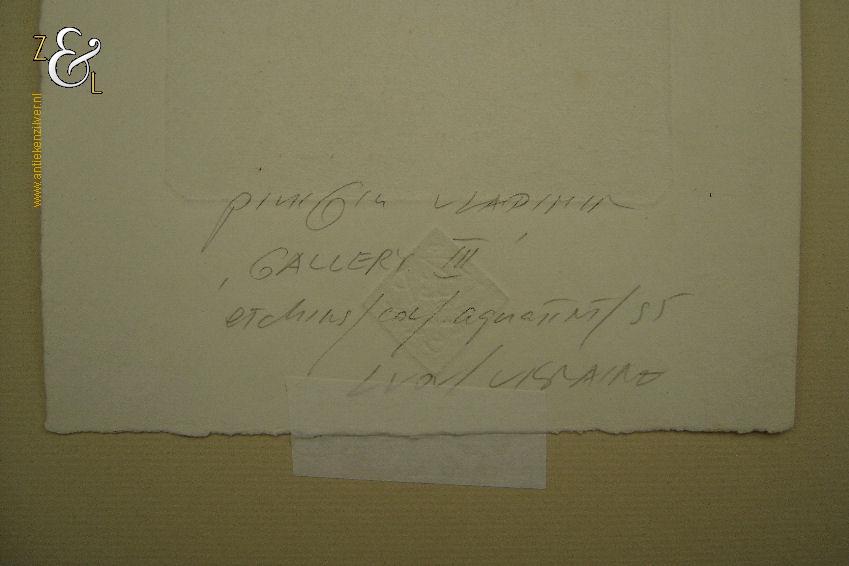 Z & L
www.antiekenzilver.nl
PINIGIN VLADIMIR
"GALLERY III"
etching/col/aquatint/95
LVOV/UKRAINE